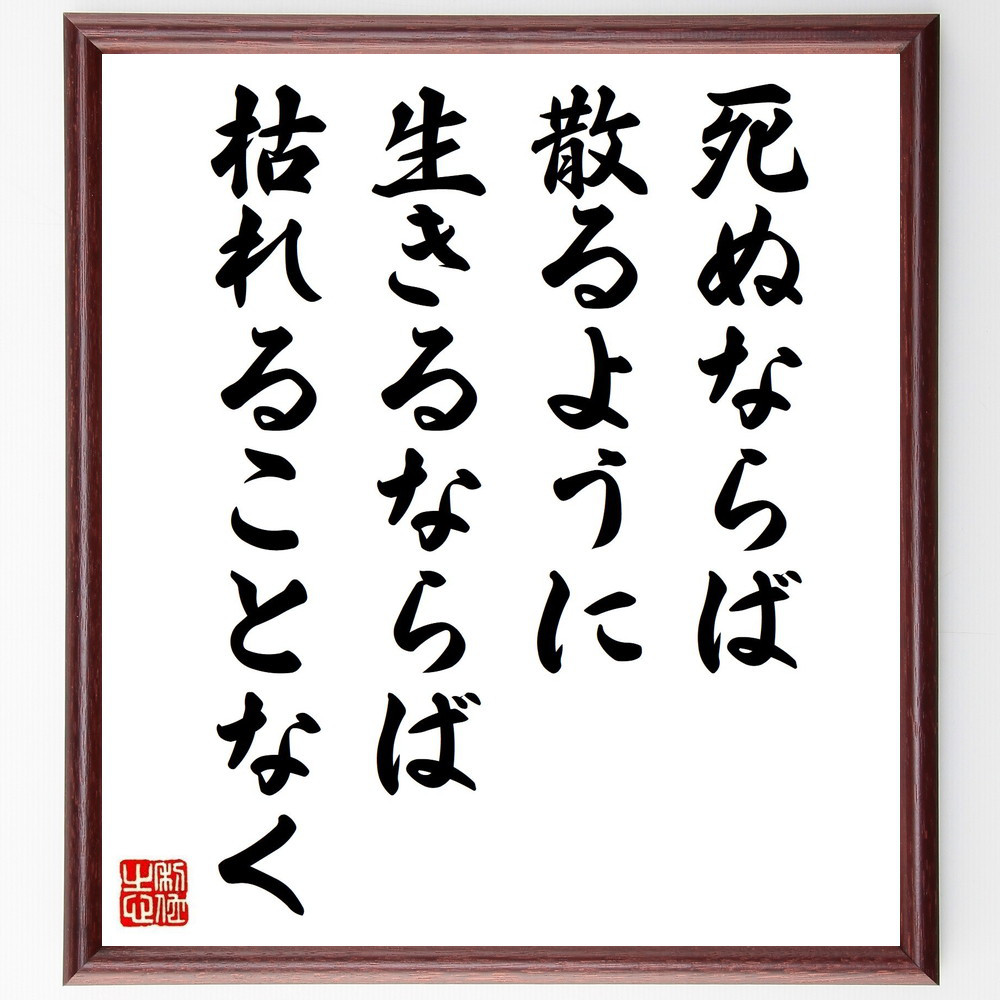 死ぬならば
散るように
生きるならば
枯れることなく